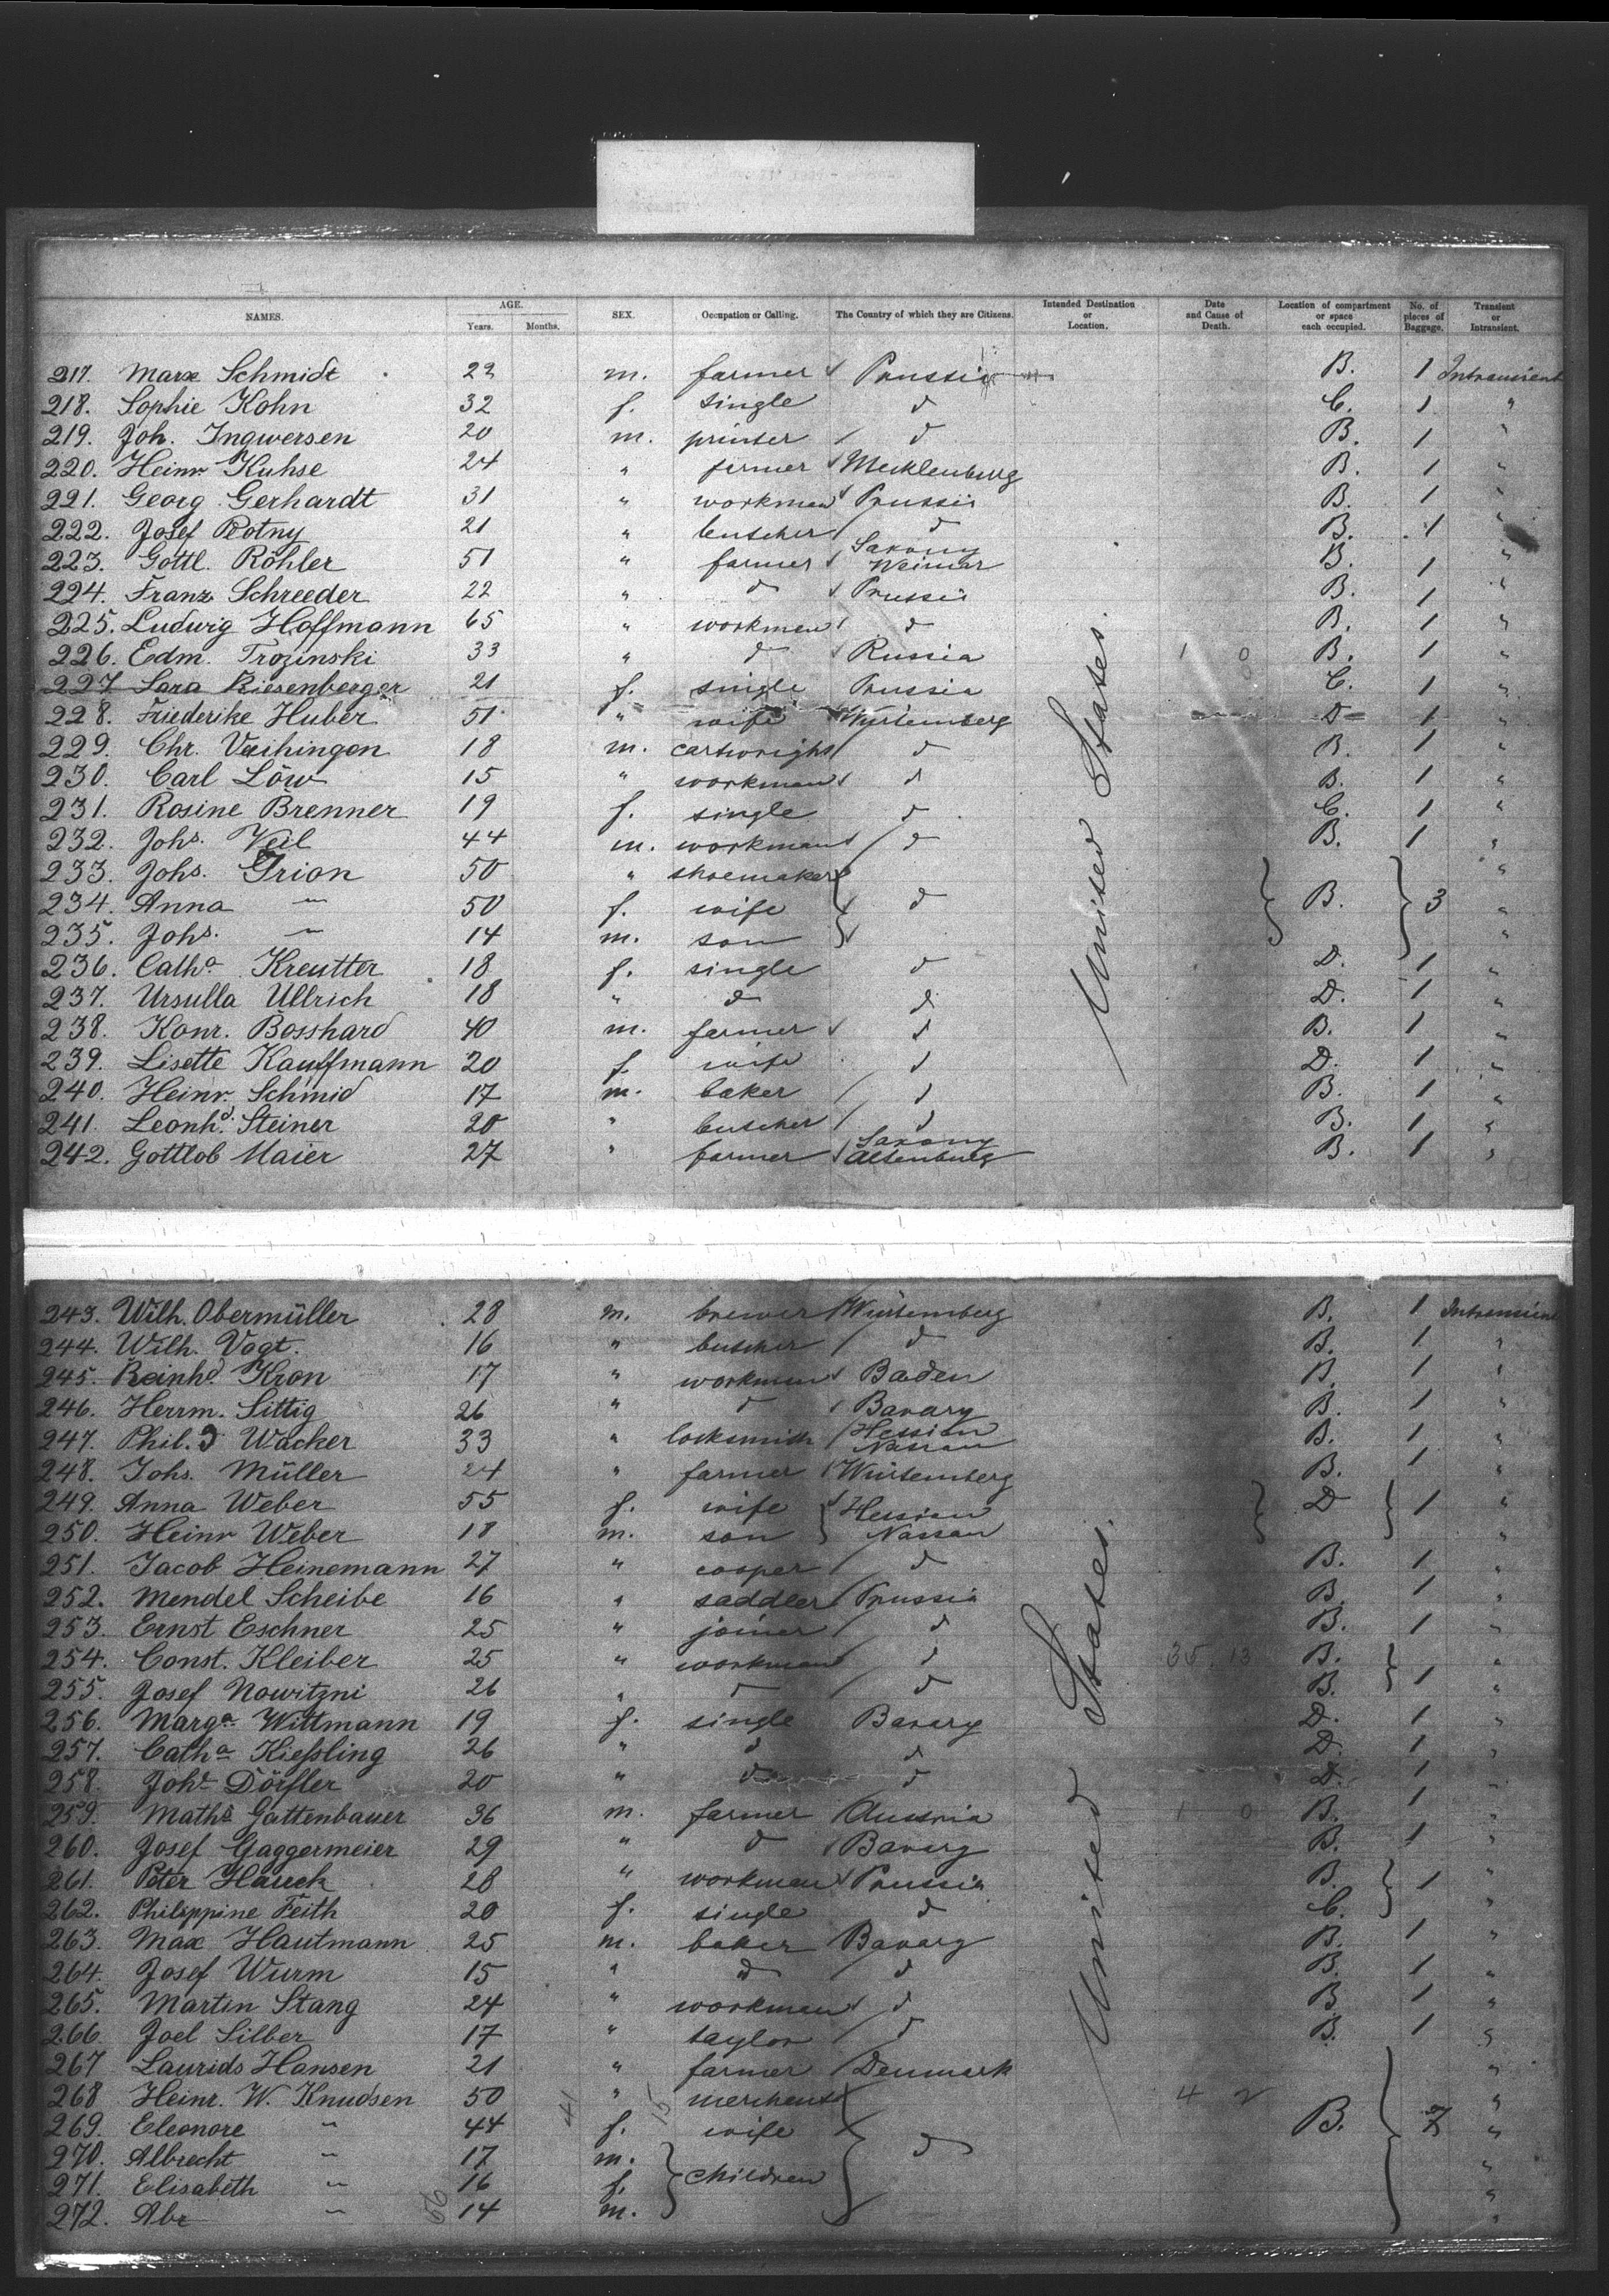 NAMES. AGE. Years. Months. SEX. Occupation or Calling. The Country of which they are Citizens. Intended Destination or Location. Date and Cause of Death. Location of compartment or space each occupied. No. of pieces of Baggage. Transient or Intransient.
217. Marx Schmidt 22 m. farmer Prussia B. 1 Intransient
218. Sophie Kohn 32 f. single d C. 1 "
219. Joh. Ingwersen 20 m. printer d B. 1 "
220. Heinr Kuhse 24 " farmer Mecklenburg B. 1 "
221. Georg Gerhardt 31 " workman Prussia B. 1 "
222. Josef Potny 21 " butcher d B. 1 "
223. Gottl. Röhler 51 " farmer Saxony Weimar B. 1 "
224. Franz Schreeder 22 " d Prussia B. 1 "
225. Ludwig Hoffmann 65 " workman d B. 1 "
226. Edm. Trozinski 33 " d Russia 1 0 B. 1 "
227 Sara Riesenberger 21 f. single Prussia C. 1 "
228. Friederike Huber 51 " wife Würtemberg D 1 "
229. Chr. Vaihingen 18 m. cartwright d B. 1 "
230. Carl Löw 15 " workman d B. 1 "
231. Rosine Brenner 19 f. single d C. 1 "
232. Johs. Veil 44 m. workman d B. 1 "
233. Johs. Grion 50 " shoemaker "
234. Anna " 50 f. wife d B. 3 "
235. Johs. " 14 m. son "
236. Catha Kreutter 18 f. single d D. 1 "
237. Ursulla Ullrich 18 " d d D. 1 "
238. Konr. Bosshard 40 m. farmer d B. 1 "
239. Lisette Kauffmann 20 f. wife d D. 1 "
240. Heinr. Schmid 17 m. baker d B. 1 "
241. Leonhd. Steiner 20 " butcher d B. 1 "
242. Gottlob Maier 27 " farmer Saxony Altenburg B. 1 "
United States.
243. Wilh. Obermüller 28 m. brewer Würtemberg B. 1 Intransient
244. Wilh. Vogt. 16 " butcher d B. 1 "
245. Reinhd. Kron 17 " workman Baden B. 1 "
246. Herrm. Sittig 26 " d Bavary B. 1 "
247. Phil. J Wacker 33 " locksmith Hessian Nassau B. 1 "
248. Johs. Müller 24 " farmer Würtemberg B. 1 "
249. Anna Weber 55 f. wife Hessian D 1 "
250. Heinr Weber 18 m. son Nassau "
251. Jacob Heinemann 27 " cooper d B. 1 "
252. Mendel Scheibe 16 " saddler Prussia B. 1 "
253. Ernst Eschner 25 " joiner d B. 1 "
254. Const. Kleiber 25 " workman d 35. 13 B. "
255. Josef Nowitzni 26 " d d B. 1 "
256. Marga Wittmann 19 f. single Bavary D. 1 "
257. Catha Kießling 26 " d d D. 1 "
258. Joha Dörfler 20 " d d D. 1 "
259. Maths Gattenbauer 36 m. farmer Austria 1 0 B. 1 "
260. Josef Gaggermeier 29 " d Bavary B. 1 "
261. Peter Hauck 28 " workman Prussia B. 1 "
262. Philippine Feith 20 f. single d C. "
263. Max Hautmann 25 m. baker Bavary B. 1 "
264. Josef Wurm 15 " d d B. 1 "
265. Martin Stang 24 " workman d B 1 "
266. Joel Silber 17 " taylor d B. 1 "
267 Laurids Hansen 21 " farmer Denmark "
268 Heinr. W. Knudsen 50 41 " 15 merchant 4 2 "
269. Eleonore " 44 f. wife B. 7 "
270. Albrecht " 17 m. d "
271. Elisabeth " 16 f. children "
272. Abr " 66 14 m. "
United States.